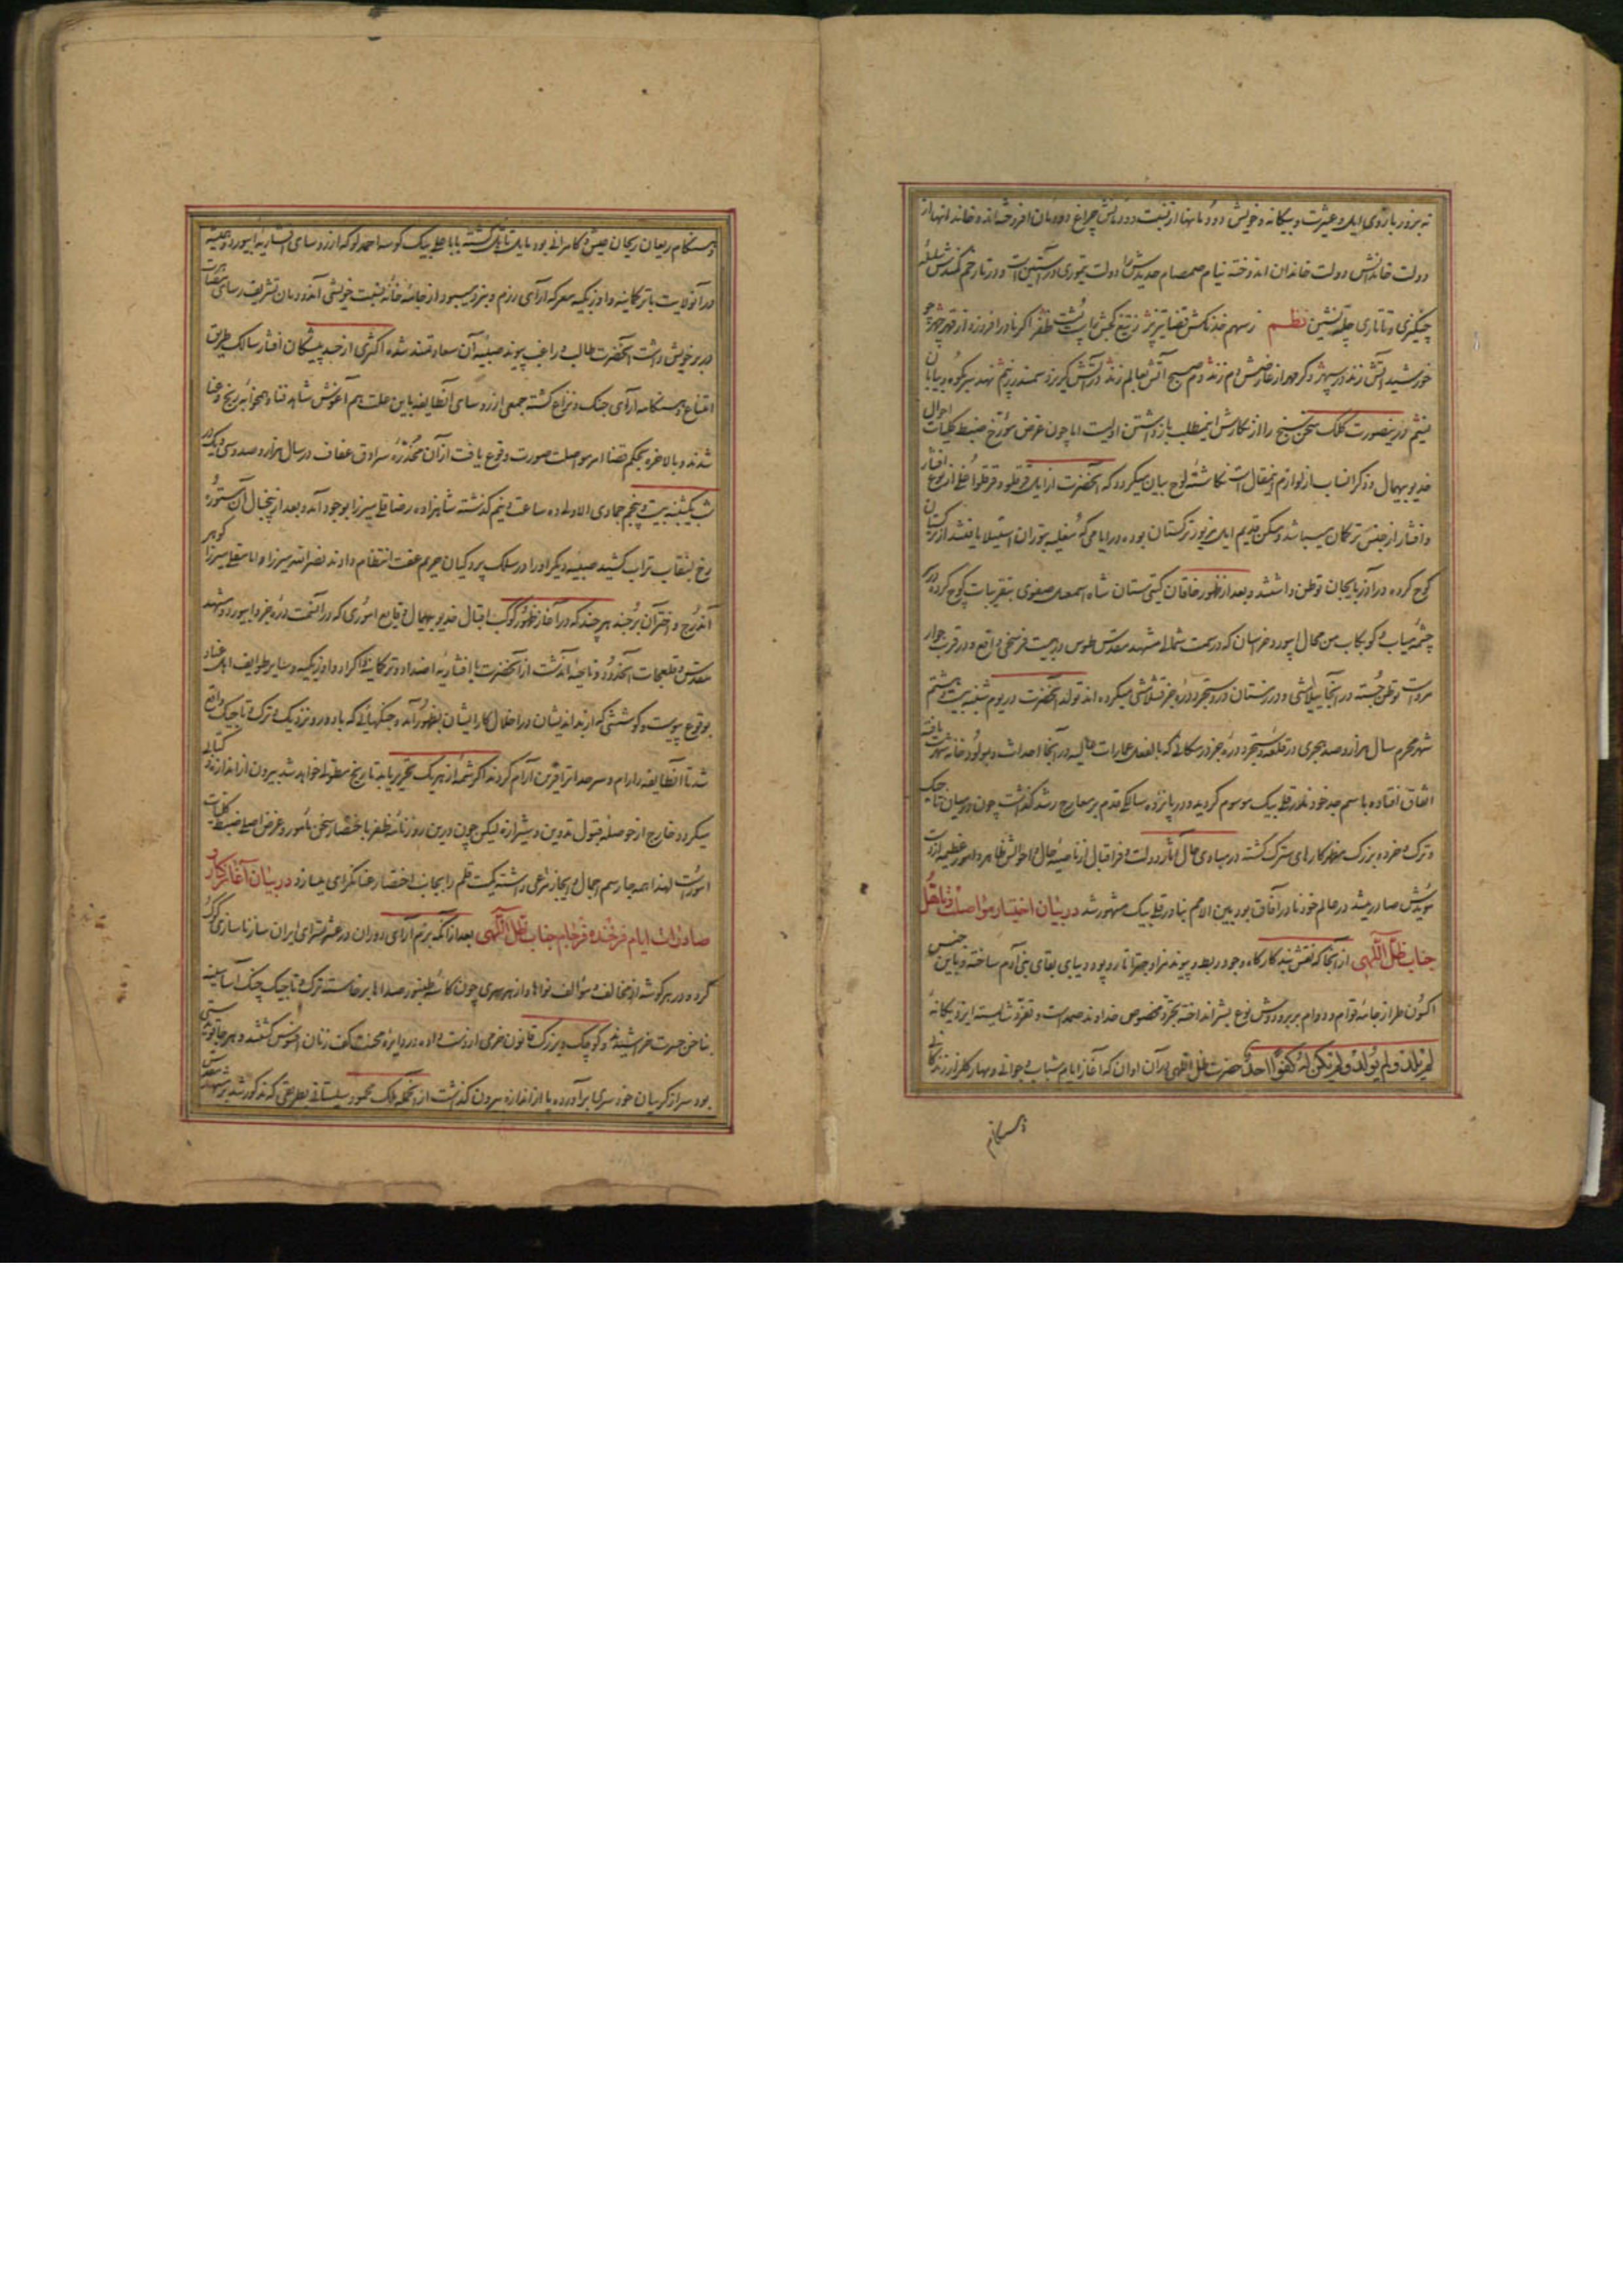 نه بزور بازوی ایل و عشیرت و بیگانه و خویش دودمانها از نسبت دودمانش چراغ دودمان افروخته‌اند و خاندانها از
دولت خاندانش دولت خاندان اندوخته نیام صمصام حدیدش را دولت تیموری در آستین است و در تار خم کمندش سلسله
چنگیزی و تاتاری حلقه نشین نظم ز سهم خدنگش قضا تیز تیغ کجش پشت ظفر
خورشید آتش زند در سپهر وگر مهر از عارضش دم زند دم صبح آتش بعالم زند در آتش گریزد سمندر نهد سر بکوه و بیابان
درینصورت کلک سخن سنج را از نگارش اینمطلب باز داشتن اولیست اما چون غرض مورخ ضبط کلیات احوال
خدیو بیهمال و ذکر انساب از لوازم اینمقال است نگاشته لوح بیان میگردد که آنحضرت از ایل قرقلو و قرقلو از نوع افشار
و افشار از جنس ترکمان میباشد و مسکن قدیم ایل مزبور ترکستان بوده در ایامی که مغلیه بتوران استیلا یافتند از ترکستان
کوچ کرده در آذربایجان توطن داشتند و بعد از ظهور خاقان گیتی ستان شاه اسمعیل صفوی بتقریبات کوچ کرده در
چشمه میاب کوبکان من محال ابیورد خراسان که در سمت شمالی مشهد مقدس طوس در بیست فرسخی واقع و در قرب جوار
مرو است توطن جسته در آنجا ییلامشی و در زمستان در دستجرد دره جز قشلامشی میکرده‌اند تولد آنحضرت در یوم شنبه بیست و هشتم
شهر محرم سال هزار و صد هجری در قلعه دستجرد دره جز در مکانی که بالفعل عمارات عالیه در آنجا احداث و بمولود خانه شهرت یافته
اتفاق افتاده باسم جد خود نذر قلی بیک موسوم گردیده و در پانزده سالگی قدم بر معارج رشد گذاشت چون در میان تاجیک
و ترک و خرد و بزرگ مظهر کارهای سترگ گشته در مبادی حال آثار دولت و فر اقبال از ناصیه حال و احوالش ظاهر و امور عظیمه از دست
مویدش صادر میشد در عالم خود نادر آفاق بود بین الامم بنادر قلی بیک مشهور شد در بیان اختیار مواصلت و تاهل
جناب ظل اللهی از آنجا که نقش بند کارگاه وجود ربط و پیوند نر و ماده را تار و پود دیبای بقای بنی آدم ساخته و باین جنس
اکسون طراز جامه قوام و دوام بر بر و دوش نوع بشر انداخته تجرد مخصوص خداوند صمد است و تفرد شایسته ایزد یگانه
لم یلد و لم یولد و لم یکن له کفوا احد حضرت ظل اللهی در آن اوان که آغاز ایام شباب و جوانی و بهار گلزار زندگانی
هنگام
و هنگام ریعان ریحان عیش و کامرانی بود مایل تاهل گشته بابا علی بیک کوسه احمدلو که از رؤسای افشاریه ابیورد و همیشه
در آنولایت با ترکمانیه و اوزبکیه معرکه آرای رزم و نبرد میبود از جامه خانه نسبت خویشی آندودمان تشریف رسای
در بر خویش داشت آنحضرت طالب و راغب پیوند صبیه آن سعادتمند شده اکثری از حسد پیشگان افشار سالک طریق
امتناع و هنگامه آرای جنگ و نزاع گشته جمعی از رؤسای آنطایفه باین علت هم آغوش شاهد فنا و همخوابه رنج و عنا
شدند و بالاخره بحکم قضا امر مواصلت صورت وقوع یافت از آن مخدره سرادق عفاف در سال هزار و صد و سی و یک در
شب یکشنبه بیست و پنجم جمادی الاولی ده ساعت و نیم گذشته شاهزاده رضا قلی میرزا بوجود آمد و بعد از پنجسال آن مستوره
رخ بنقاب تراب کشید صبیه دیگر او را در سلک پردگیان حریم عفت انتظام دادند نصر الله میرزا و امامقلی میرزا گوهر
آندرج و اختر آن برجند هر چند که در آغاز ظهور کوکب اقبال خدیو بیهمال وقایع اموری که در آنسمت دره جز و ابیورد و مشهد
مقدس و قلعجات آنحدود و ناحیه آندشت از آنحضرت با افشاریه اضداد و ترکمانیه و اکراد و اوزبکیه و سایر طوایف اهل عناد
بوقوع پیوست و کوششی که از بداندیشان در اخلال کار ایشان بظهور آمد و جنگهائی که با دور و نزدیک و ترک و تاجیک واقع
شد تا آنطایفه را رام و سر حد آنرا قرین آرام کردند اگر شمه از هر یک تحریر یابد تاریخ مطولی خواهد شد بیرون از اندازه کتابی
میگردد و خارج از حوصله قبول تدوین و شیرازه لیکن چون درین روزنامه ظفر باختصار سخن مأمور و غرض اصلی ضبط کلیات
امور است لهذا همه جا رسم اجمال و ایجاز مرعی داشته کمیت قلم را بجانب اختصار عنانگرای میسازد در بیان آغاز کار و
صادرات ایام فرخنده فرجام جناب ظل اللهی بعد از آنکه بزم آرای دوران در عشرتسرای ایران ساز ناسازی کوک
کرد و در هر گوشه از مخالف و مؤالف نواها و از هر سری چون کاسه طنبور صداها برخاست ترک و تاجیک چنگ آسا سینه
بناخن حسرت خراشیده و کوچک و بزرگ قانون خرمی از دست داده در دایره محنت کف زنان افسوس گشتند و هر جا
بود سر از گریبان خودسری برآورده پا از اندازه بیرون گذاشت از آنجمله ملک محمود سیستانی بطریقی که مذکور شد بر مشهد مقدس